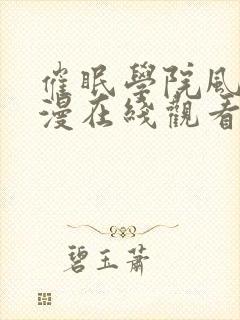 催眠學院風
漫在綫觀看
碧玉蕭